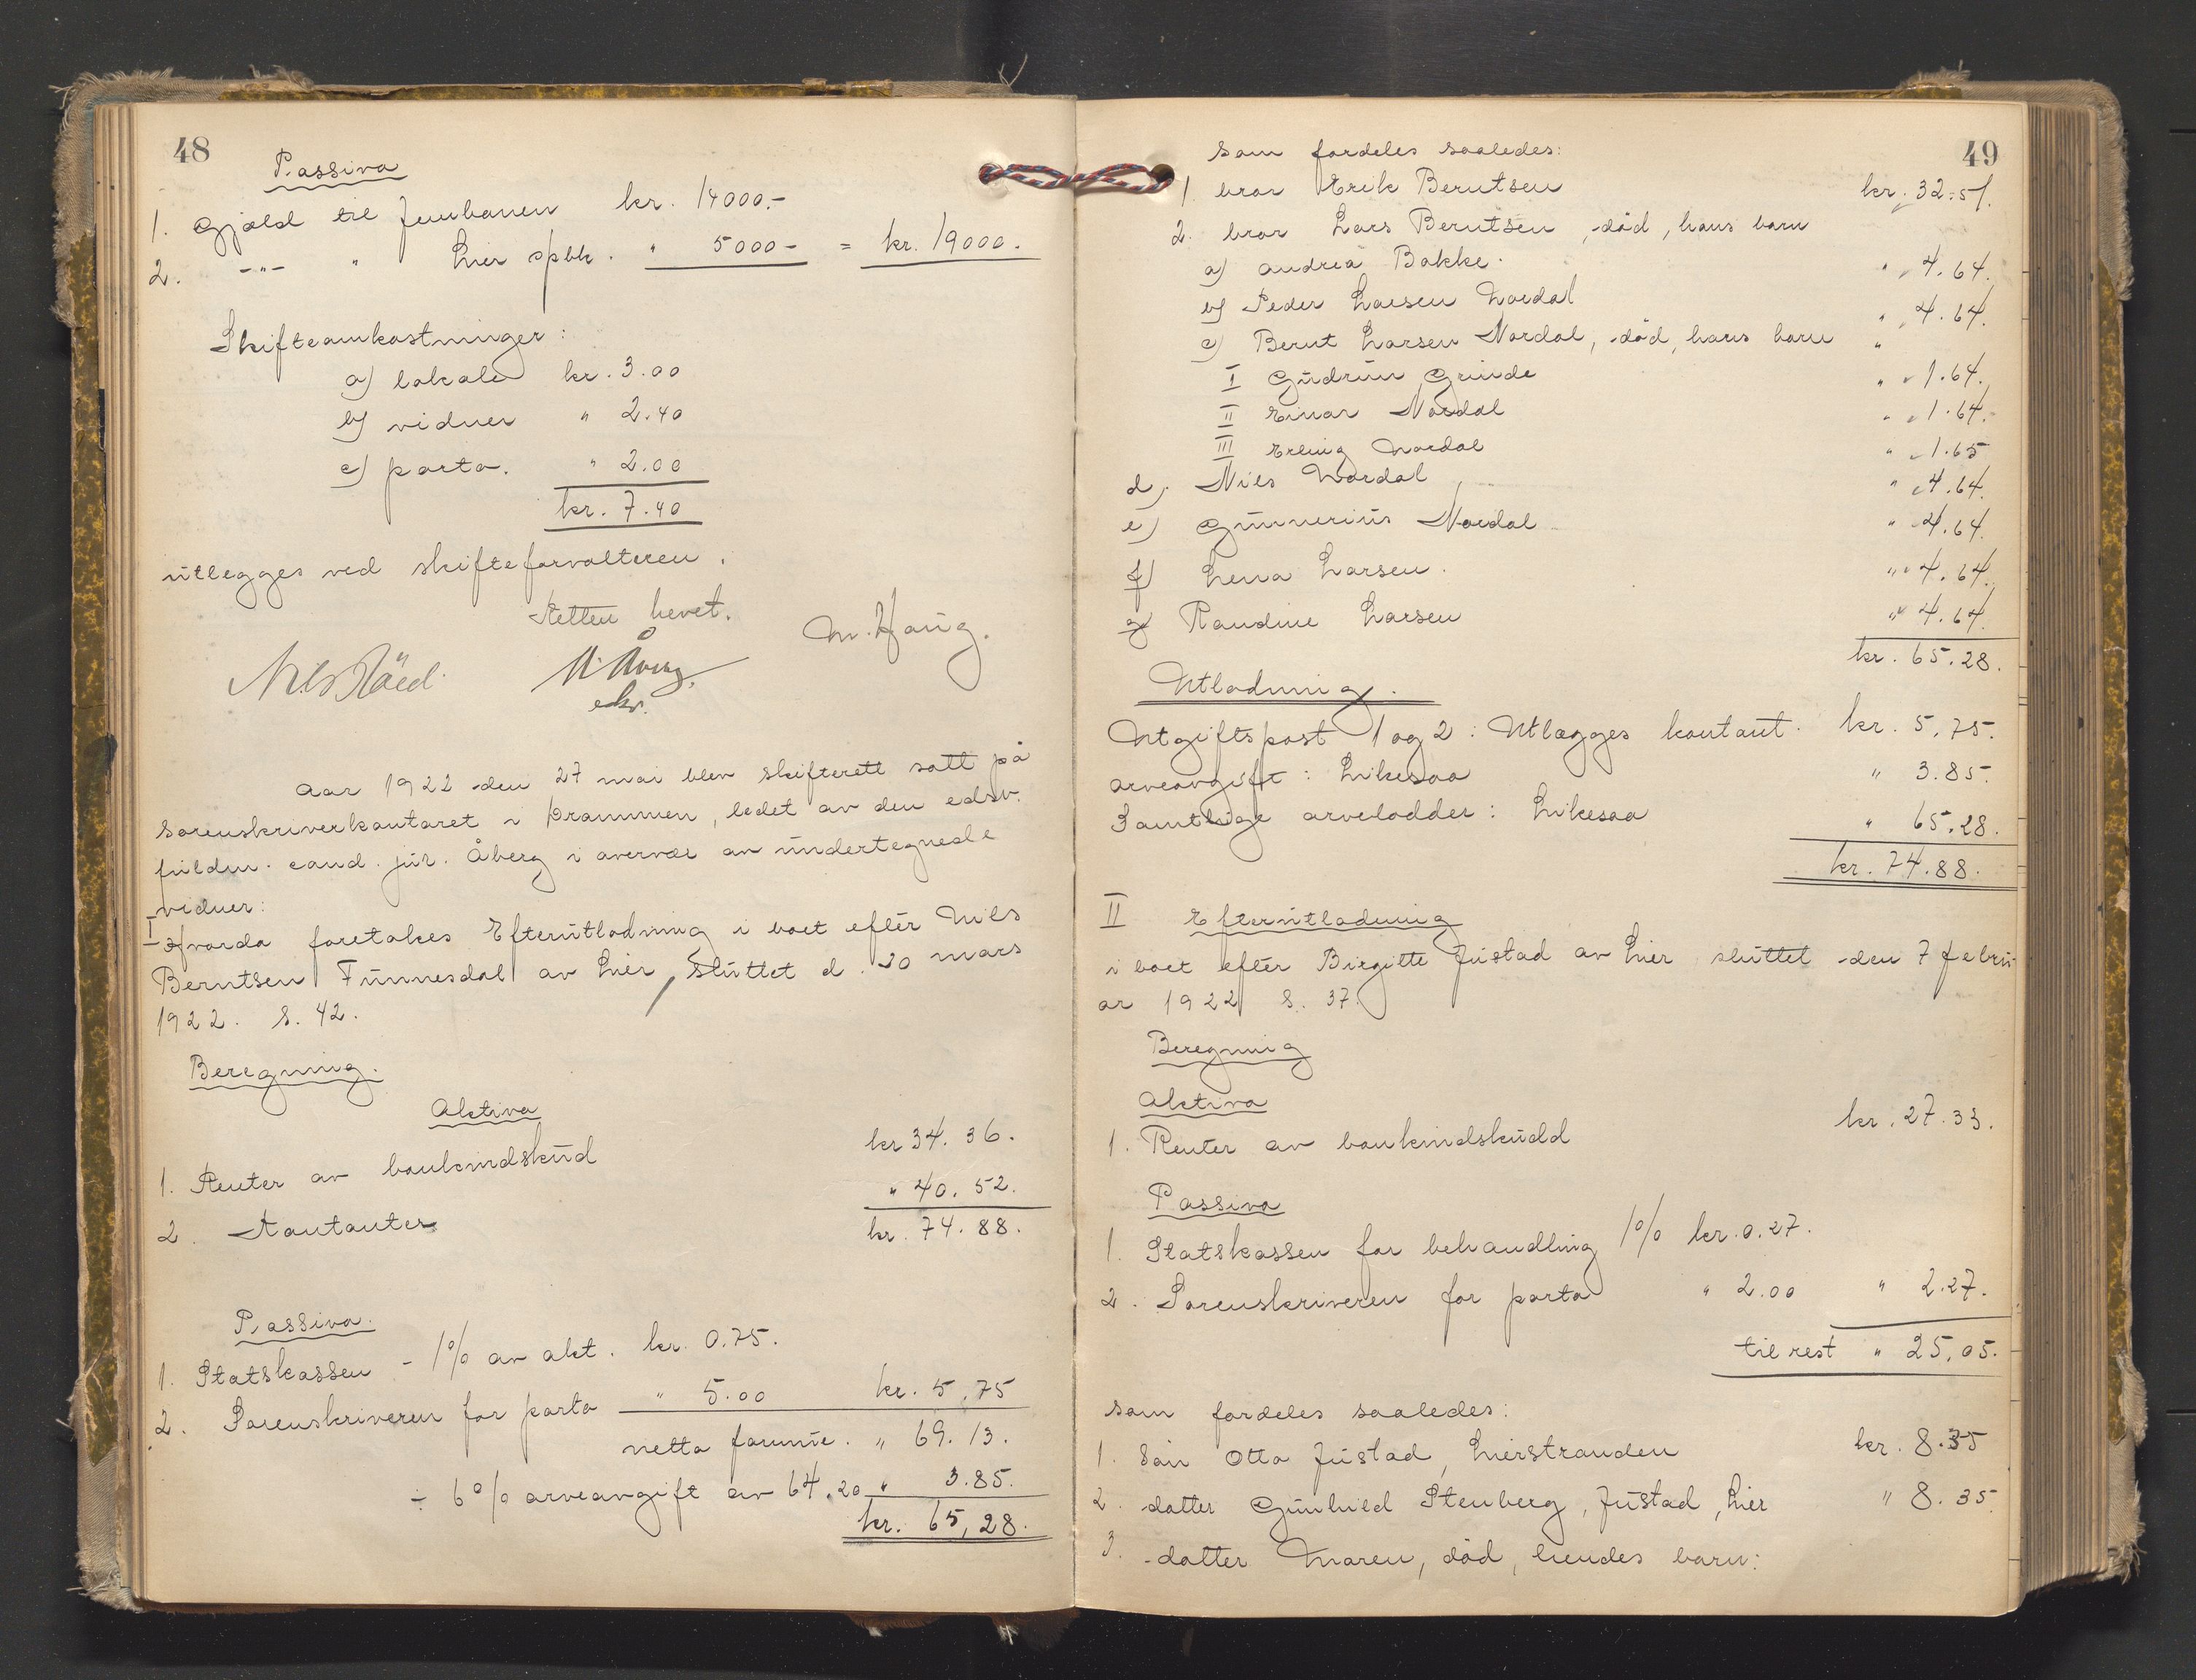 48
Passiva
1. Gjæld til Jembanen kr. 14000.-
2. -"- " Lier spbk. " 5000- = kr. 19000.
Skifteomkostninger:
a) lokale kr. 3.00
b) vidner " 2.40
c) porto. " 2.00
kr. 7.40
utlegges ved skifteforvalteren.
Retten hevet.
M. Haug.
Aar 1922 den 27 mai blev skifterett satt på
sorenskriverkontoret i Drammen, ledet av den edsv.
fuldm. cand. jur. Åberg i overvær av undertegnede
vidner:
I Hvorda foretokes Efterutlodning i boet efter Nils
Berntsen Funnesdal av Lier, sluttet d. 20 mars
1922. S. 42.
Beregning.
Aktiva
1. Renter av bankindskud kr 34. 36.
2. Kontanter " 40. 52.
kr. 74. 88.
Passiva.
1. Statskassen - 1% av akt. kr. 0.75.
2. Sorenskriveren for porto " 5.00 kr. 5.75
netto formue. " 69. 13.
÷ 6% arveavgift av 64.20 " 3.85.
kr. 65,28.
49
som fordeles saaledes:
1. bror Erik Berntsen kr. 32.51.
2. bror Lars Berntsen, død, hans barn
a) Andrea Bakke. " 4.64.
b) Peder Larsen Nordal " 4.64.
c) Bernt Larsen Nordal, død, hans barn "
I Gudrun Grinde " 1.64.
II Einar Nordal " 1.64.
III Erling Nordal " 1.65
d) Nils Nordal " 4.64.
e) Gunnerius Nordal " 4.64.
f) Lena Larsen. " 4.64.
g) Randine Larsen " 4.64.
kr. 65.28.
Utlodning.
Utgiftspost 1 og 2: Utlægges kontant. kr. 5.75.
arveavgift: Likesaa " 3.85.
Samtlige arvelodder: Likesaa " 65.28.
kr. 74.88.
II Efterutlodning
i boet efter Birgitte Justad av Lier sluttet den 7 febru-
ar 1922 S. 37.
Beregning
Aktiva
1. Renter av bankindskudd kr. 27.33.
Passiva
1. Statskassen for behandling 1% kr. 0.27.
2. Sorenskriveren for porto " 2.00 " 2.27.
til rest " 25.05.
som fordeles saaledes:
1. Søn Otto Justad, Lierstranden kr. 8.35
2. datter Gunhild Stenberg, Justad, Lier " 8.35
3. datter Maren, død, hendes barn: